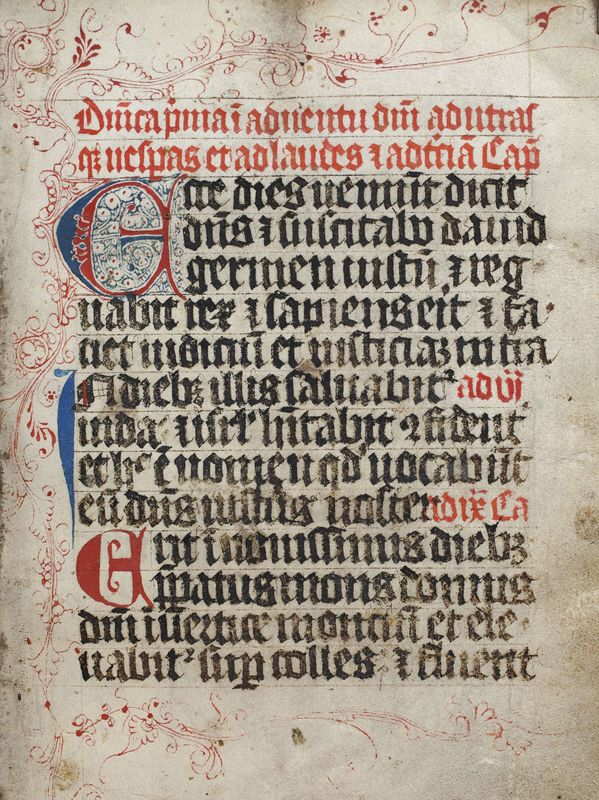 Dn̄ica p̄ma ī aduentu dn̄i ad utras
qꝫ uesꝑas et ad laudes ⁊ ad t̄ciā Cap̄
Ecce dies ueniūt dicit
dn̄s ⁊ suscitabo dauid
germen iustū ⁊ reg
nabit rex ⁊ sapiens eit ⁊ fa
ciet iudiciū et iusticiaꝫ in t̄ra
In diebꝫ illis saluabit᷑ ad vī
iuda ⁊ isrl̄ hītabit ꝯfident᷑
et hͦ ē nomen qd̓ uocabūt
eū dn̄s iustus noster ad ix̄ Ca
Erit ī nouissimis diebꝫ
p̄paratus mons domus
dn̄i in uertice montiū et ele
uabit᷑ suꝑ colles ⁊ fluent